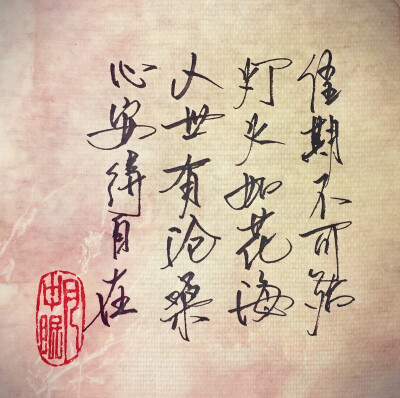 佳期不可
灯火如花海
人世有沧桑
心安得自在